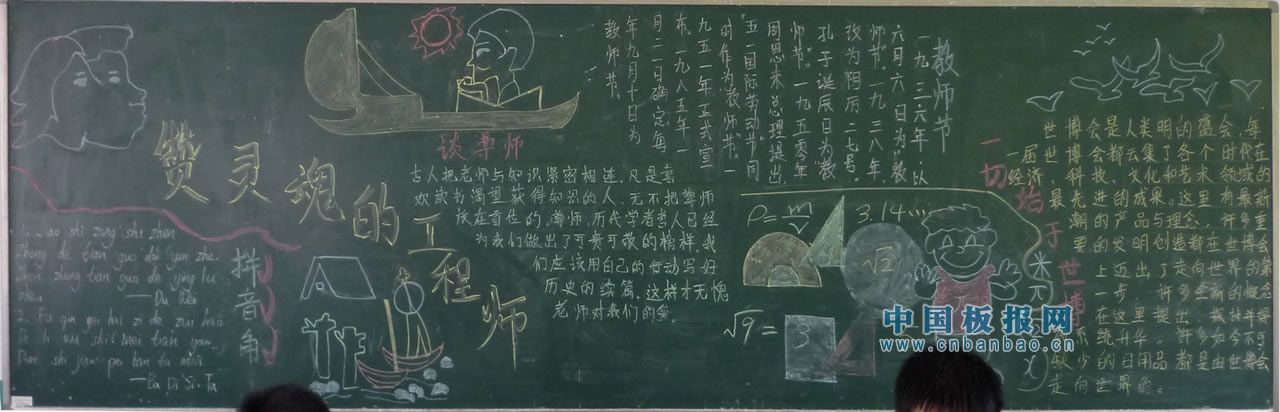 赞灵魂的工程师
拼音角
1. Lao shi zong shi zhen
zheng de tan guo dai yun zhe.
zhe.
2. Fu qin gei hai zi de zui hao
谈尊师
古人把老师与知识紧密相连,凡是喜
欢读书渴望获得知识的人,无不把尊师
放在首位的,尊师,历代学者哲人已经
为我们做出了可贵可敬的榜样,我
们应该用自己的行动写好
历史的续篇,这样才无愧
老师对我们的爱。
教师节
一九三六年,以
六月六日为"教
师节"。一九三八年,
改为阴历二七号。
孔子诞辰日为教
师节。一九五零年
周恩来总理提出,
"五一国际劳动节"同
时作为"教师节"。一
九五一年正式宣
布。一九八五年一
月二一日确定:每
年九月十日为
教师节。
ρ=m/v
3.14…
√2
√9=
3
一切始于世博
世博会是人类明的盛会,每
一届世博会都云集了各个时代在
经济、科技、文化和艺术领域的
最先进的成果。这里有最新
潮的产品与理念,许多重
要的发明创造都在世博会
上迈出了走向世界的第
一步,许多全新的概念
在这里提出
系统升华。许多如今不可
缺少的日用品都是由世博会
走向世界的。
中国板报网
www.cnbanbao.cn